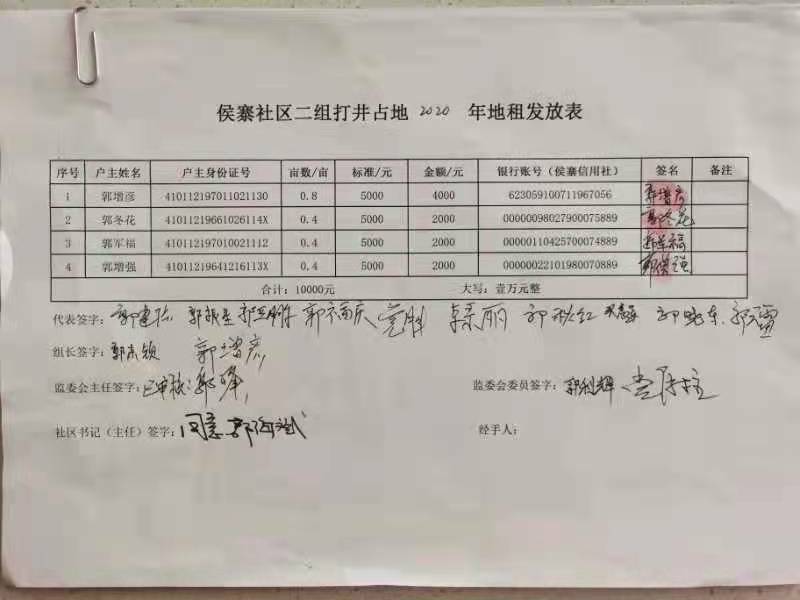 侯寨社区二组打井占地 2020 年地租发放表
序号 户主姓名 户主身份证号 亩数/亩 标准/元 金额/元 银行账号（侯寨信用社） 签名 备注
1 郭增彦 410112197011021130 0.8 5000 4000 623059100711967056 郭增彦
2 郭冬花 41011219661026114X 0.4 5000 2000 00000098027900075889 郭冬花
3 郭军福 410112197010021112 0.4 5000 2000 00000110425700074889 郭军福
4 郭增强 41011219641216113X 0.4 5000 2000 00000022101980070889 郭增强
合计：10000元 大写：壹万元整
代表签字：
组长签字： 郭增彦
监委会主任签字：已审核：郭峰 监委会委员签字：郭利辉
社区书记（主任）签字：同意 经手人：